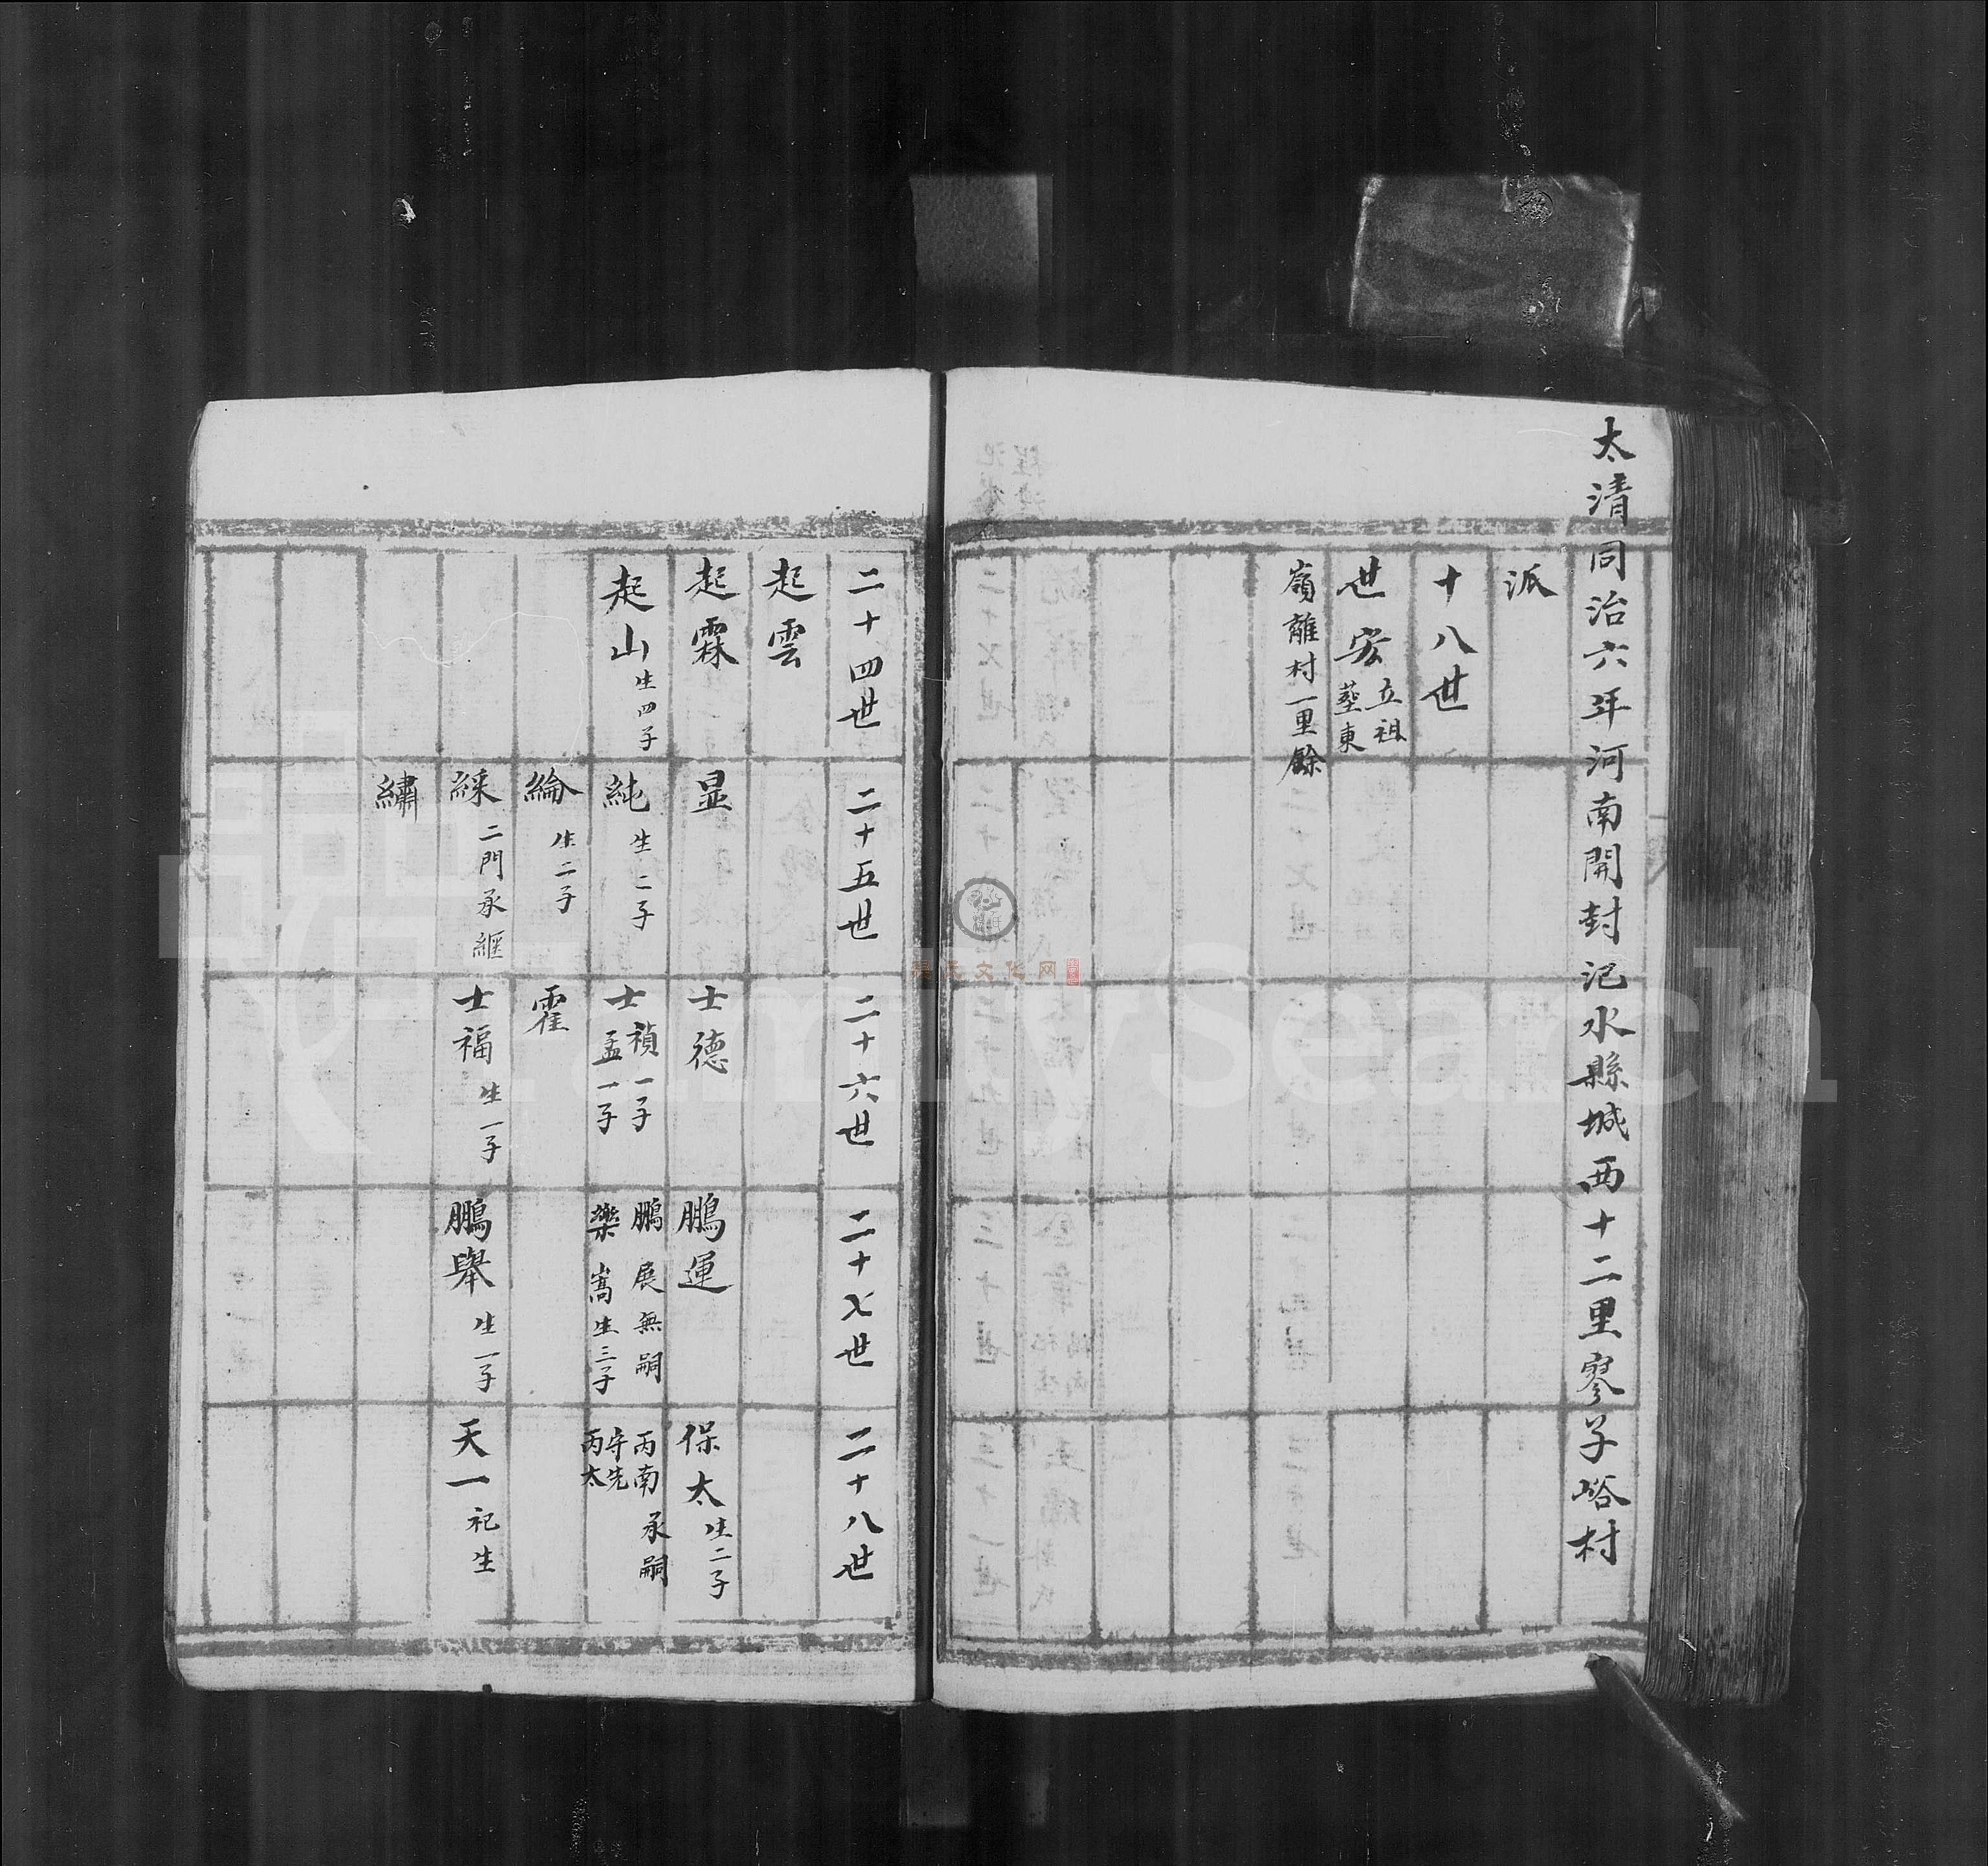 太清同治六年河南開封汜水縣城西十二里寥子峪村
派
十八世
世宏 立祖塟東
嶺離村一里餘
二十四世
二十五世
二十六世
二十七世
二十八世
起雲
起霖
显
士德
鵬運
保太 生二子
起山 生四子
純 生二子
士禎 一子
孟 一子
鵬展 無嗣
樂嵩 生三子
丙南 承嗣
守先
丙太
綸 生二子
霍
綵 二門承繼
士福 生一子
鵬舉 生一子
天一 祀生
繡
FamilySearch